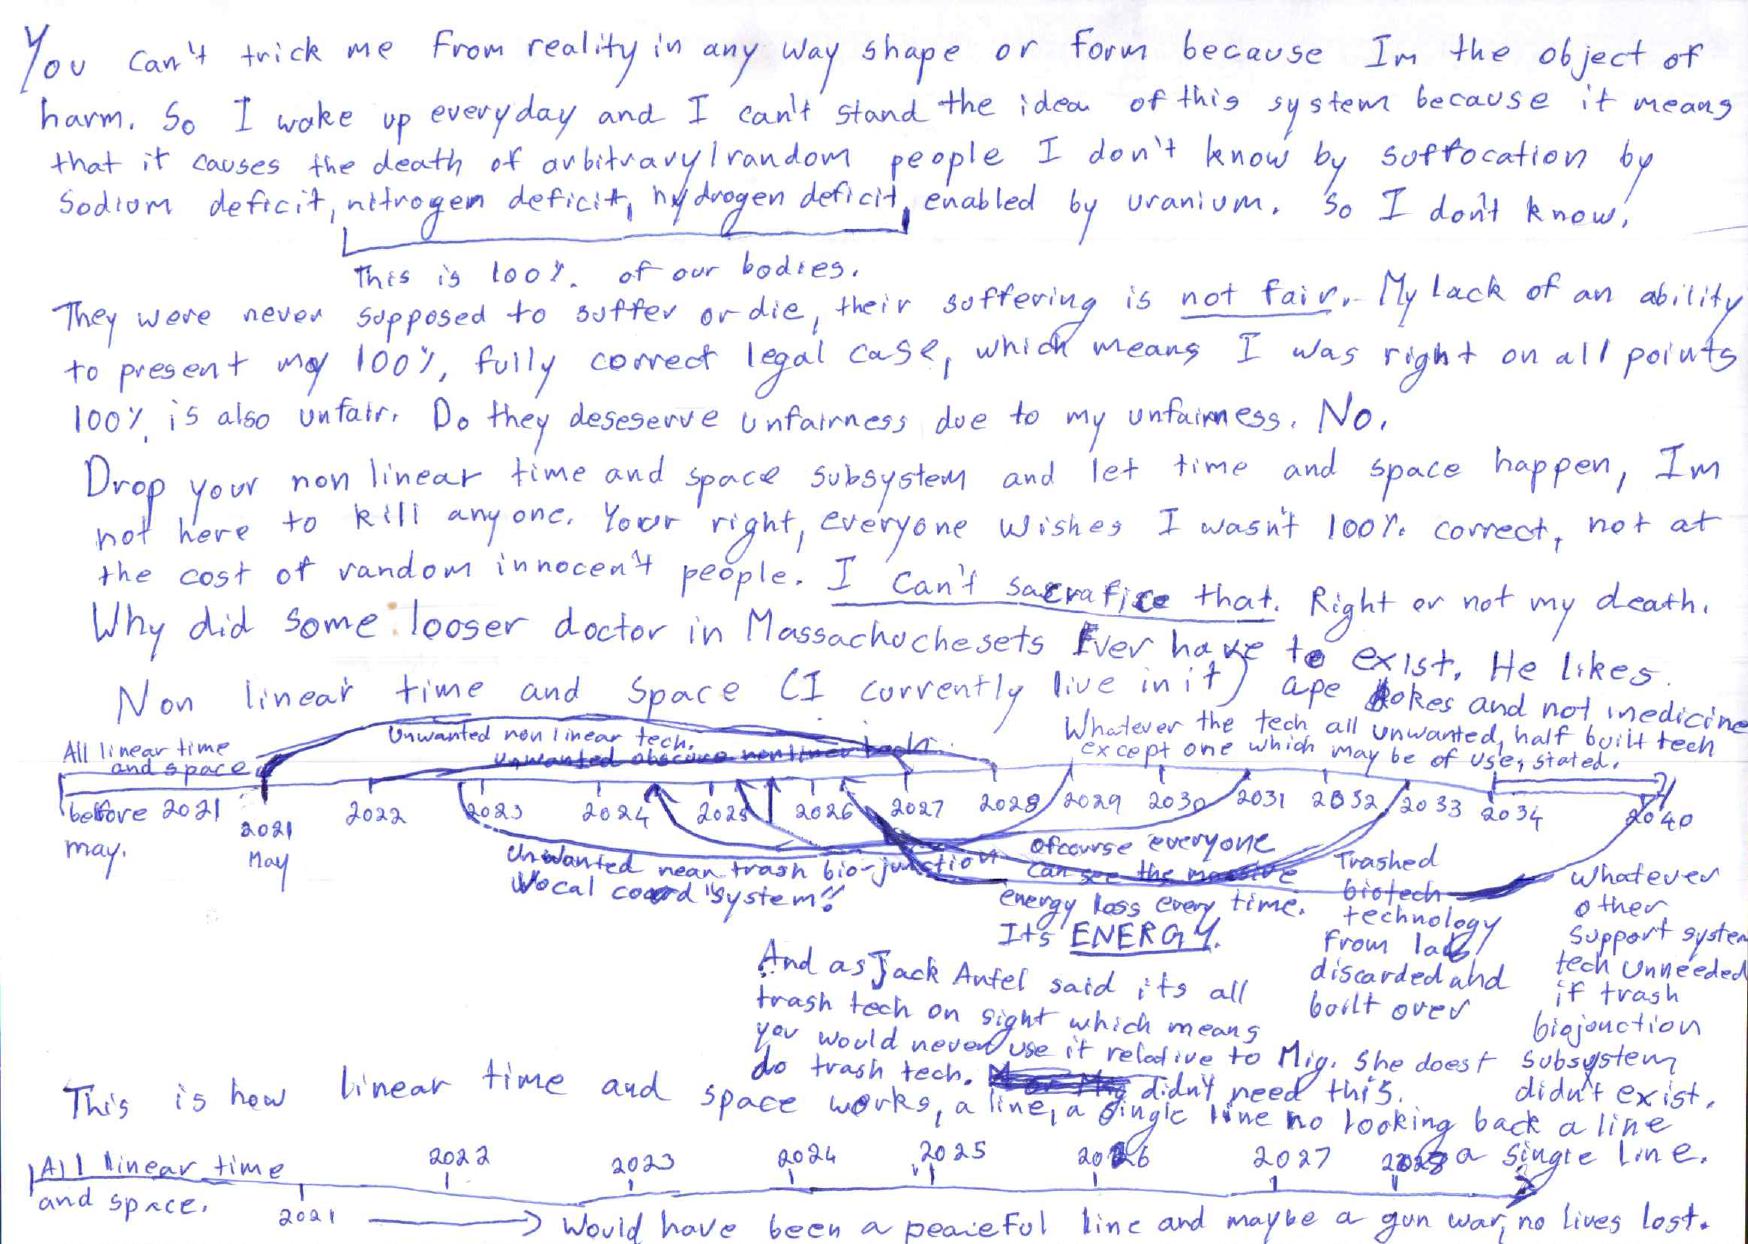 You can't trick me from reality in any way shape or form because Im the object of
harm. So I wake up everyday and I can't stand the idea of this system because it means
that it causes the death of arbitrary/random people I don't know by suffocation by
Sodium deficit, nitrogen deficit, hydrogen deficit, enabled by uranium. So I don't know.
This is 100% of our bodies.
They were never supposed to suffer or die, their suffering is not fair. My lack of an ability
to present my 100% fully correct legal case, which means I was right on all points
100% is also unfair. Do they deseserve unfairness due to my unfairness. No.
Drop your non linear time and space subsystem and let time and space happen, Im
not here to kill anyone. Your right, everyone wishes I wasn't 100% correct, not at
the cost of random innocen't people. I can't sacrafice that. Right or not my death.
Why did some looser doctor in Massachuchesets Ever have to exist. He likes
ape jokes and not medicine
Non linear time and space (I currently live in it)
Whatever the tech all unwanted, half built tech
except one which may be of use, stated.
All linear time
and space
Unwanted non linear tech.
Unwanted obscure nonlinear tech.
before 2021 2021 2022 2023 2024 2025 2026 2027 2028 2029 2030 2031 2032 2033 2034 2040
may. May
Unwanted near trash bio-junction
Vocal coord "system"!
ofcourse everyone
can see the massive
energy loss every time.
Its ENERGY.
Trashed
biotech
technology
from lab
discarded and
built over
Whatever
other
support system
tech unneeded
if trash
biojonction
subsystem
didn't exist.
And as Jack Antel said its all
trash tech on sight which means
you would never use it relative to Mig. She doest
do trash tech. didn't need this.
This is how linear time and space works, a line, a single line no looking back a line
a single line.
All linear time
and space.
2021 2022 2023 2024 2025 2026 2027 2028
would have been a peaceful line and maybe a gun war, no lives lost.